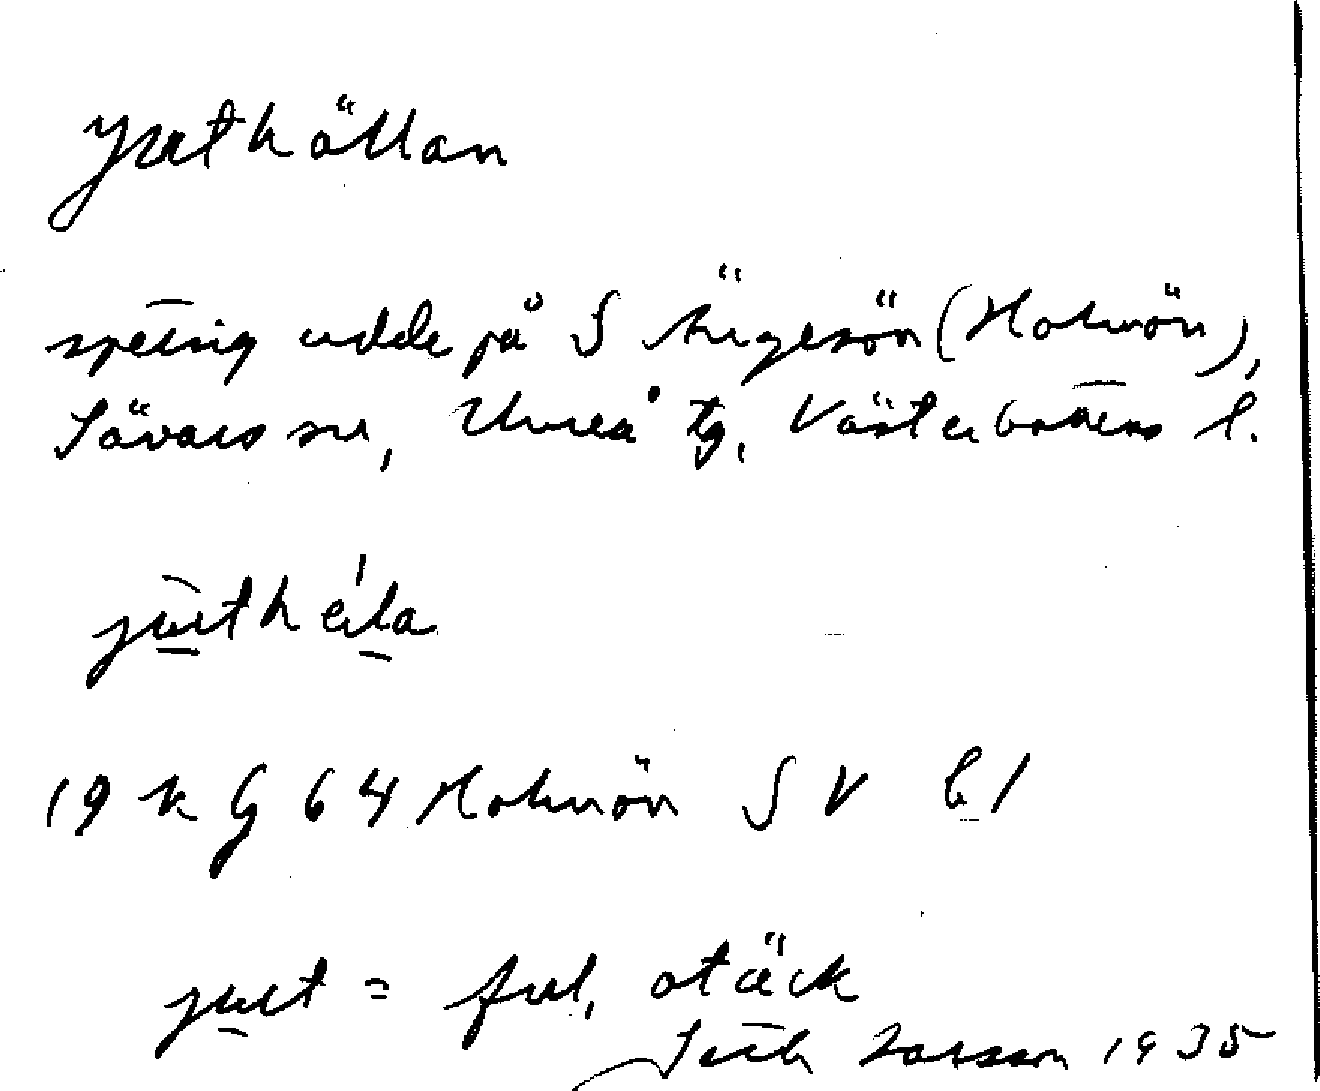 Juthällan
spetsig udde på S Ängesön (Holmön),
Sävars sn, Umeå tg, Västerbottens l.
19 k G 64 Holmön SV b 1
jut = ful, otäck
Larsson 1935